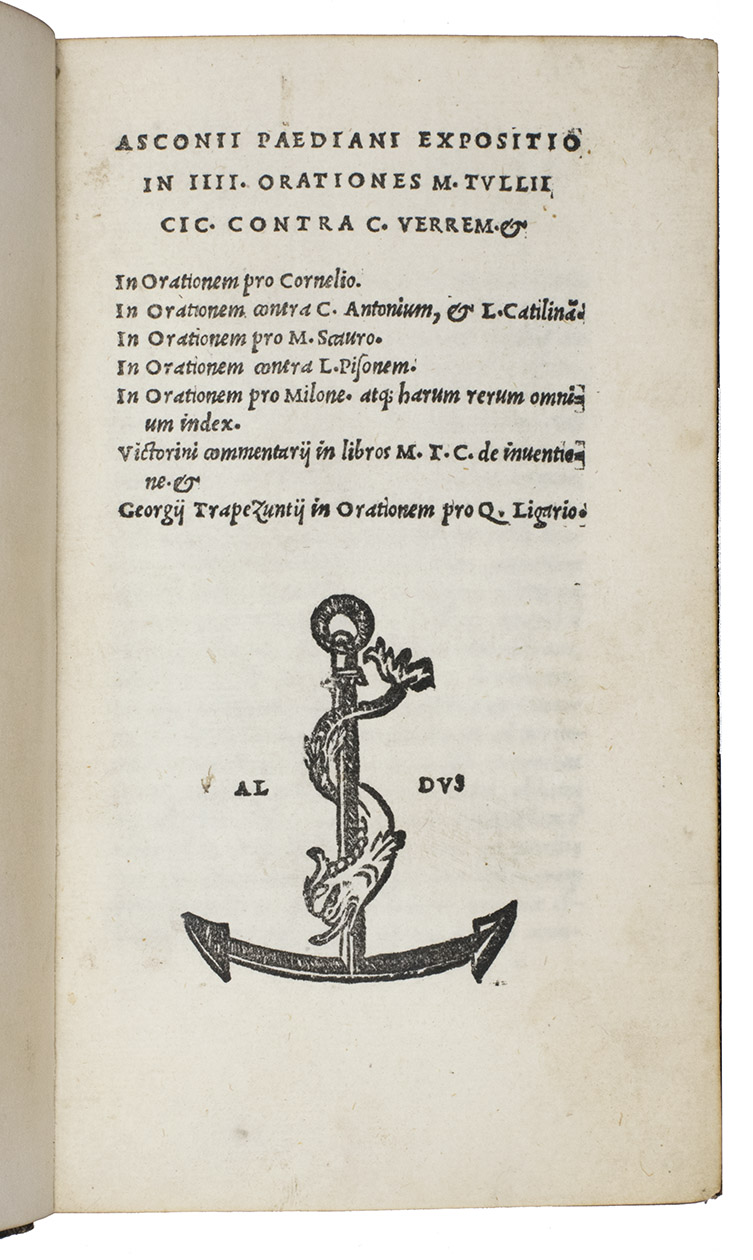 ASCONII PAEDIANI EXPOSITIO
IN IIII. ORATIONES M. TVLLII
CIC. CONTRA C. VERREM. &
In Orationem pro Cornelio.
In Orationem contra C. Antonium, & L. Catilinā.
In Orationem pro M. Scauro.
In Orationem contra L. Piſonem.
In Orationem pro Milone. atq; harum rerum omni-
um index.
Victorini commentarij in libros M. T. C. de inuentio-
ne. &
Georgij Trapezuntij in Orationem pro Q. Ligario.
AL DVS